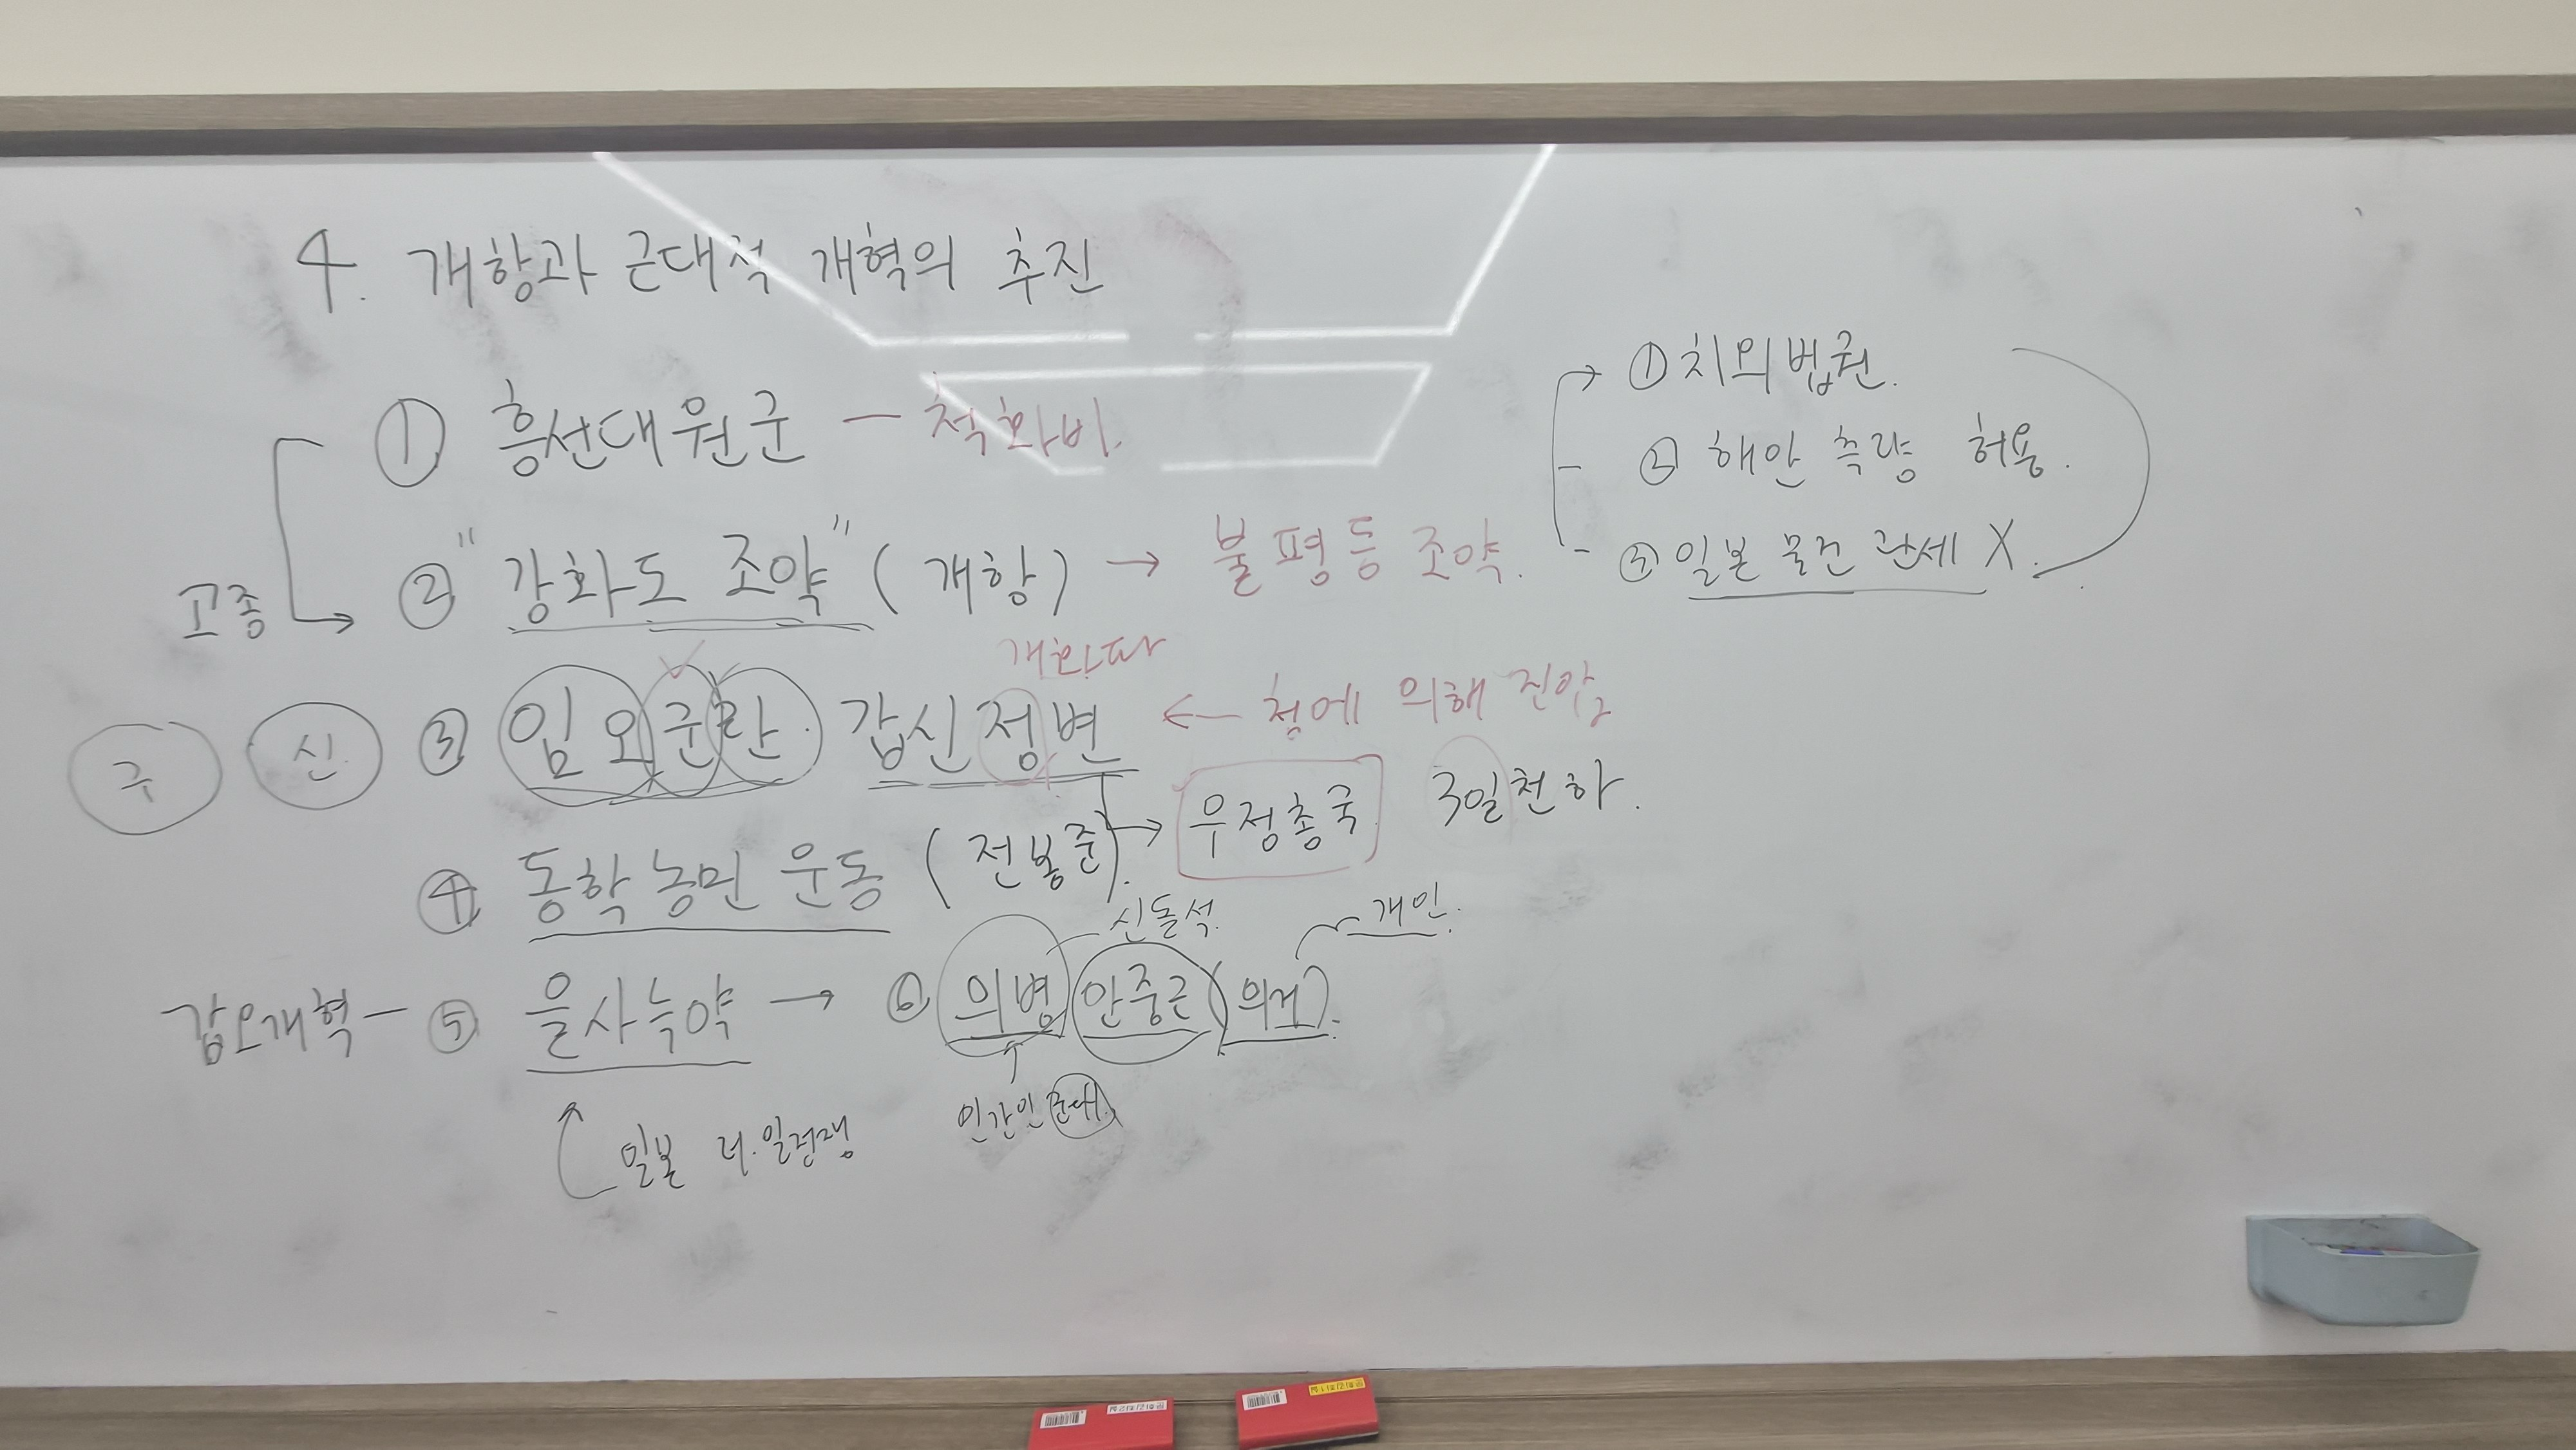 4. 개항과 근대적 개혁의 추진
① 흥선대원군 — 척화비.
② "강화도 조약" (개항) → 불평등 조약.
→ ① 치외법권.
② 해안 측량 허용.
③ 일본 물건 관세 X.
고종
개화파
구 신 ③ 임오군란. 갑신정변 ← 청에 의해 진압
→ 우정총국 3일천하.
④ 동학농민 운동 (전봉준).
신돌석. 개인.
갑오개혁 — ⑤ 을사늑약 → ⑥ 의병 안중근 (의거).
일본 러.일전쟁
군대